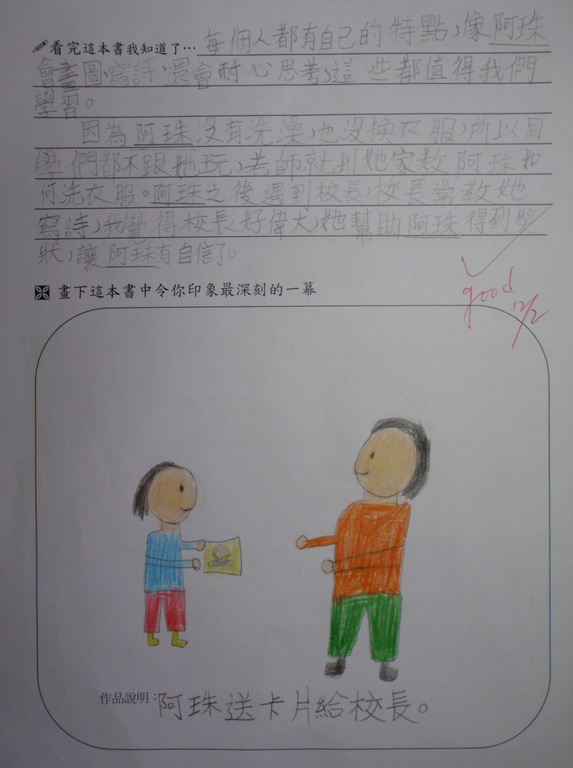 看完這本書我知道了…每個人都有自己的特點，像阿珠
會畫圖、寫詩，還會耐心思考，這些都值得我們
學習。
因為阿珠沒有洗澡，也沒換衣服，所以同
學們都不跟她玩，老師就到她家教阿珠如
何洗衣服。阿珠之後遇到校長，校長常教她
寫詩，我覺得校長好偉大，她幫助阿珠得到獎
狀，讓阿珠有自信了。
good
12/2
畫下這本書中令你印象最深刻的一幕
作品說明：阿珠送卡片給校長。